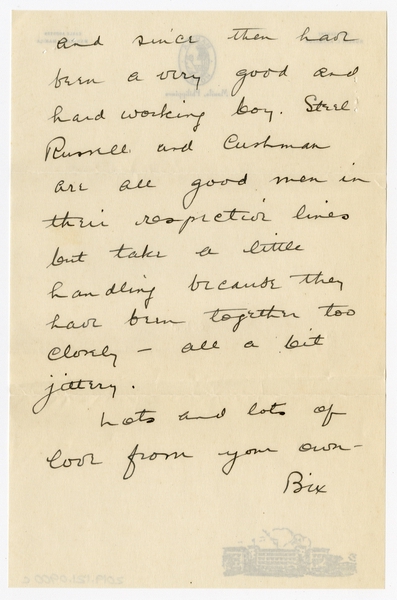 and since then have
been a very good and
hard working boy. Steel
Russell and Cushman
are all good men in
their respective lines
but take a little
handling because they
have been together too
closely – all a bit
jittery.
Lots and lots of
love from your own –
Bix